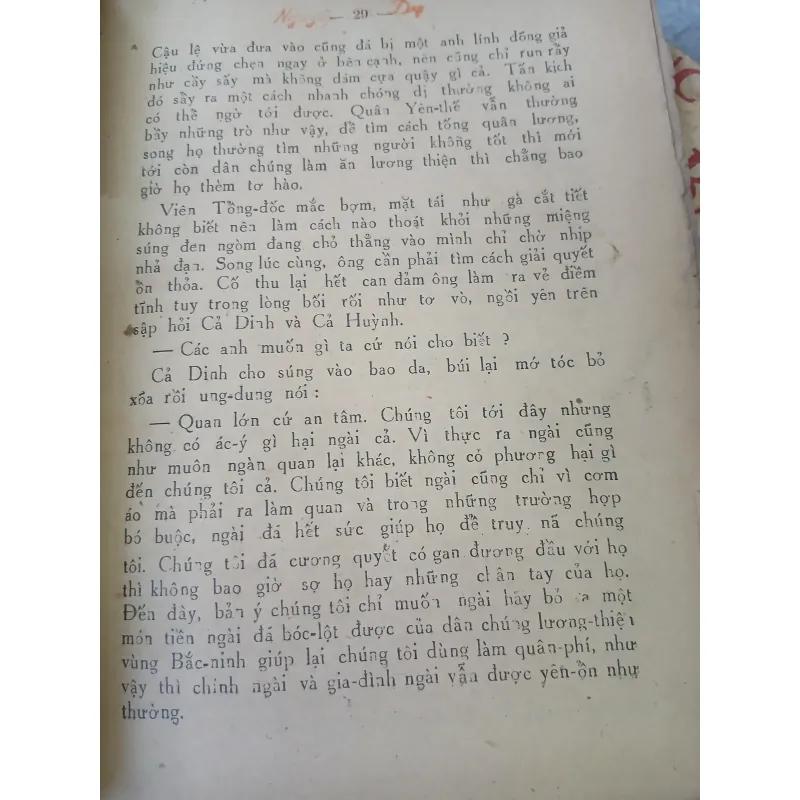 — 29 — Duy
Cậu lệ vừa đưa vào cũng đã bị một anh lính dõng giả
hiệu đứng chẹn ngay ở bên cạnh, nên cũng chỉ run rẩy
như cầy sấy mà không dám cựa quậy gì cả. Tấn kịch
đó sẩy ra một cách nhanh chóng dị thường không ai
có thể ngờ tới được. Quân Yên-thế vẫn thường
bầy những trò như vậy, để tìm cách tống quân lương,
song họ thường tìm những người không tốt thì mới
tới còn dân chúng làm ăn lương thiện thì chẳng bao
giờ họ thèm tơ hào.
Viên Tổng-đốc mắc bợm, mặt tái như gà cắt tiết
không biết nên làm cách nào thoát khỏi những miệng
súng đen ngòm đang chỏ thẳng vào mình chỉ chờ nhịp
nhả đạn. Song lúc cùng, ông cần phải tìm cách giải quyết
ổn thỏa. Cố thu lại hết can đảm ông làm ra vẻ điềm
tĩnh tuy trong lòng bối rối như tơ vò, ngồi yên trên
sập hỏi Cả Dinh và Cả Huỳnh.
— Các anh muốn gì ta cứ nói cho biết ?
Cả Dinh cho súng vào bao da, búi lại mớ tóc bỏ
xõa rồi ung-dung nói :
— Quan lớn cứ an tâm. Chúng tôi tới đây nhưng
không có ác-ý gì hại ngài cả. Vì thực ra ngài cũng
như muôn ngàn quan lại khác, không có phương hại gì
đến chúng tôi cả. Chúng tôi biết ngài cũng chỉ vì cơm
áo mà phải ra làm quan và trong những trường hợp
bó buộc, ngài đã hết sức giúp họ để truy nã chúng
tôi. Chúng tôi đã cương quyết có gan đương đầu với họ
thì không bao giờ sợ họ hay những chân tay của họ.
Đến đây, bản ý chúng tôi chỉ muốn ngài hãy bỏ ra một
món tiền ngài đã bóc-lột được của dân chúng lương-thiện
vùng Bắc-ninh giúp lại chúng tôi dùng làm quân-phí, như
vậy thì chính ngài và gia-đình ngài vẫn được yên-ổn như
thường.